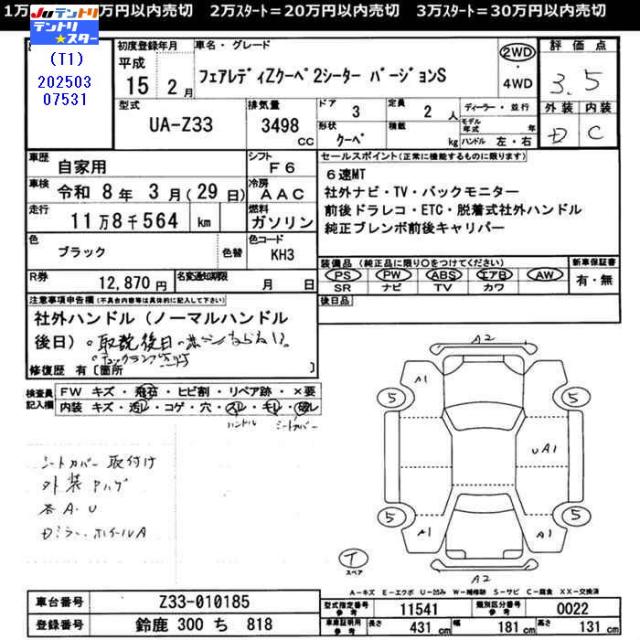 1万スタート=10万円以内売切 2万スタート=20万円以内売切 3万スタート=30万円以内売切
Juテントリ
テントリ★スター
(T1)
202503
07531
初度登録年月 車名・グレード 2WD・4WD 評価点
平成 15年 2月 フェアレディZクーペ 2シーター バージョンS 3.5
外装 内装
D C
型式 UA-Z33 排気量 3498 cc ドア 3 定員 2人 ディーラー・並行
形状 クーペ 積載 kg モデル年式 年 ハンドル 左・右
車歴 自家用 シフト F6
車検 令和 8年 3月(29日) 冷房 AAC
走行 11万8千564 km 燃料 ガソリン
色 ブラック 色替 色コード KH3
R券 12,870円 名変通知期限 月 日
セールスポイント(正常に機能するものに限ります)
6速MT
社外ナビ・TV・バックモニター
前後ドラレコ・ETC・脱着式社外ハンドル
純正ブレンボ前後キャリパー
装備品(純正品に限り○をつけてください) 新車保証書
PS PW ABS エアB AW 有・無
SR ナビ TV カワ
後日品
注意事項申告欄(不具合内容等は具体的に記入して下さい)
社外ハンドル(ノーマルハンドル
後日)。取説後日
修復歴 有[箇所 ]
検査員記入欄 FW キズ・飛石・ヒビ割・リペア跡・×要
内装 キズ・汚レ・コゲ・穴・スレ・キレ・破レ
ハンドル シートカバー
シートカバー取付け
外装Pハゲ
各A・U
Dミラー ホイールA
A2
A1
5 5
UA1
5 5
A1 A1
T
スペア
A2
A-キズ E-エクボ U-凹み W-補修跡 S-サビ C-腐食 XX-交換済
車台番号 Z33-010185
登録番号 鈴鹿 300 ち 818
型式指定番号 11541 類別区分番号 0022
車庫証明用参考 長さ 431 cm 幅 181 cm 高さ 131 cm